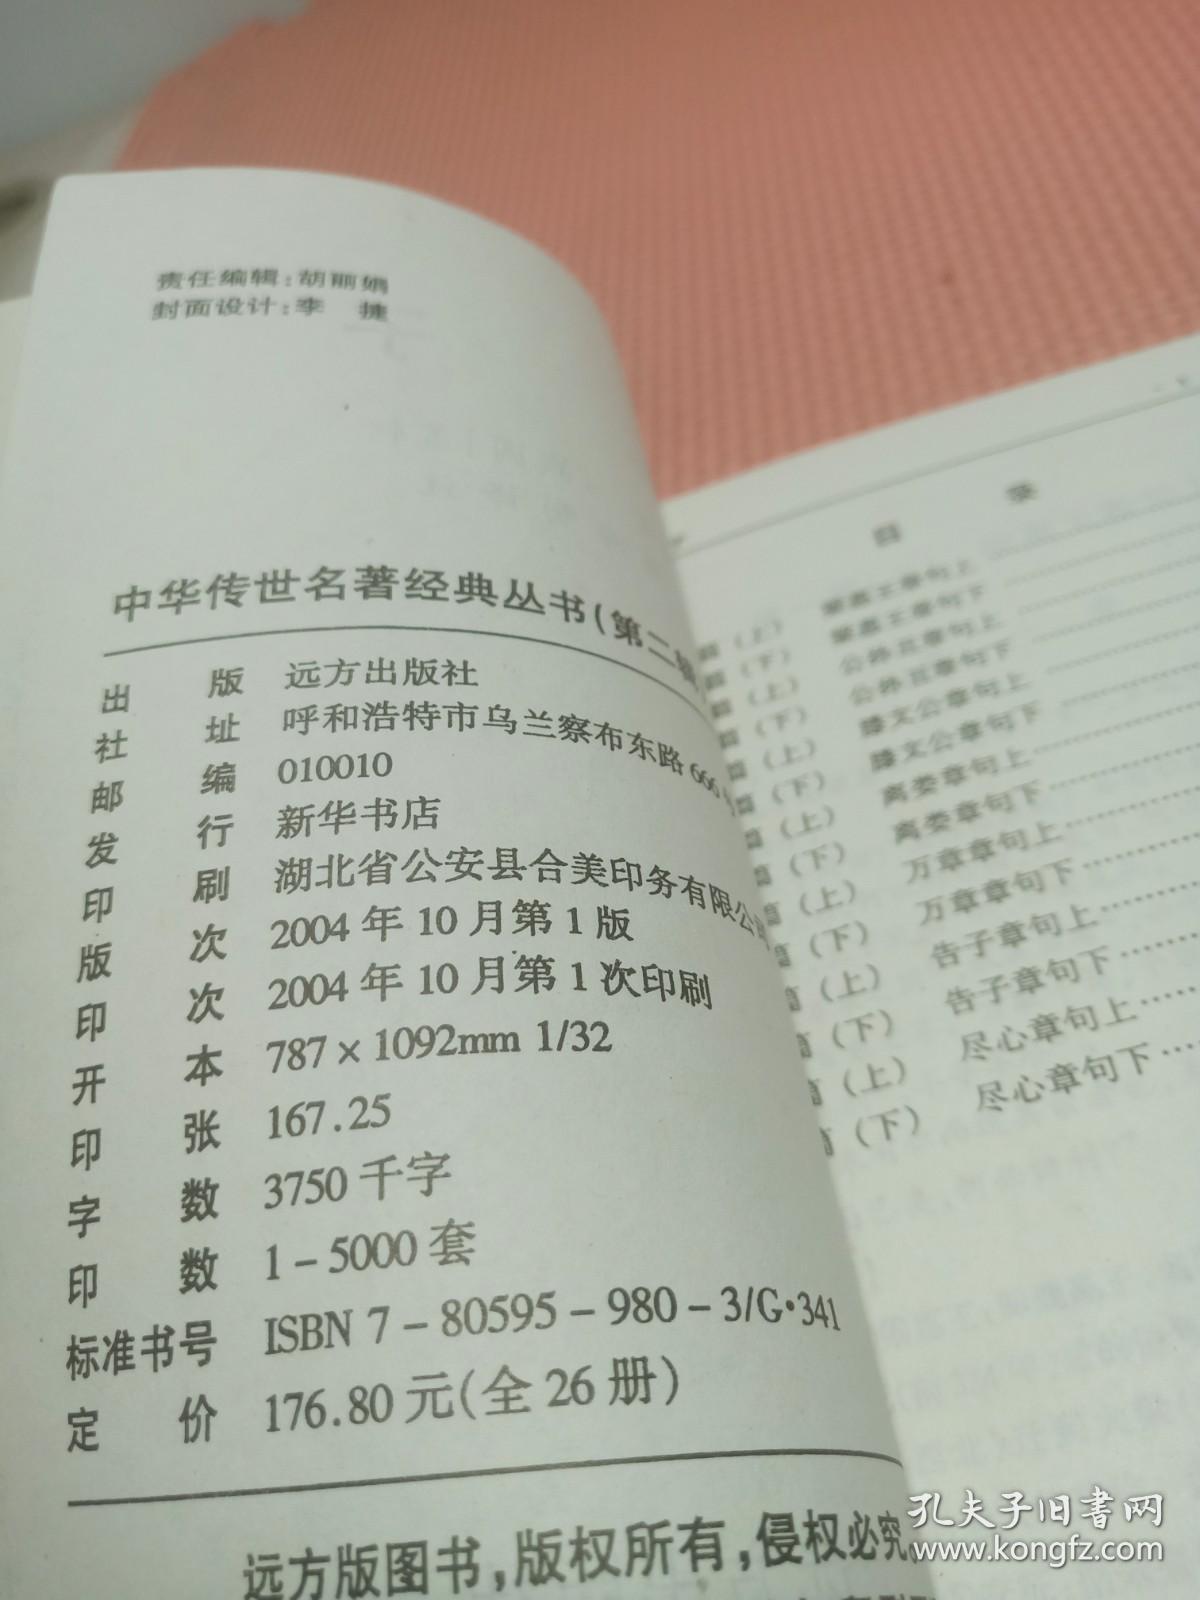 责任编辑:胡丽娟
封面设计:李 捷
中华传世名著经典丛书(第二辑
出 版 远方出版社
社 址 呼和浩特市乌兰察布东路 666 号
邮 编 010010
发 行 新华书店
印 刷 湖北省公安县合美印务有限公司
版 次 2004 年 10 月第 1 版
印 次 2004 年 10 月第 1 次印刷
开 本 787×1092mm 1/32
印 张 167.25
字 数 3750 千字
印 数 1-5000 套
标准书号 ISBN 7-80595-980-3/G·341
定 价 176.80 元(全 26 册)
远方版图书,版权所有,侵权必究。
目 录
篇(上) 梁惠王章句上
篇(下) 梁惠王章句下
篇(上) 公孙丑章句上
篇(下) 公孙丑章句下
篇(上) 滕文公章句上
篇(下) 滕文公章句下
篇(上) 离娄章句上
篇(下) 离娄章句下
篇(上) 万章章句上
篇(下) 万章章句下
篇(上) 告子章句上
篇(下) 告子章句下
篇(上) 尽心章句上
篇(下) 尽心章句下
孔夫子旧书网
www.kongfz.com